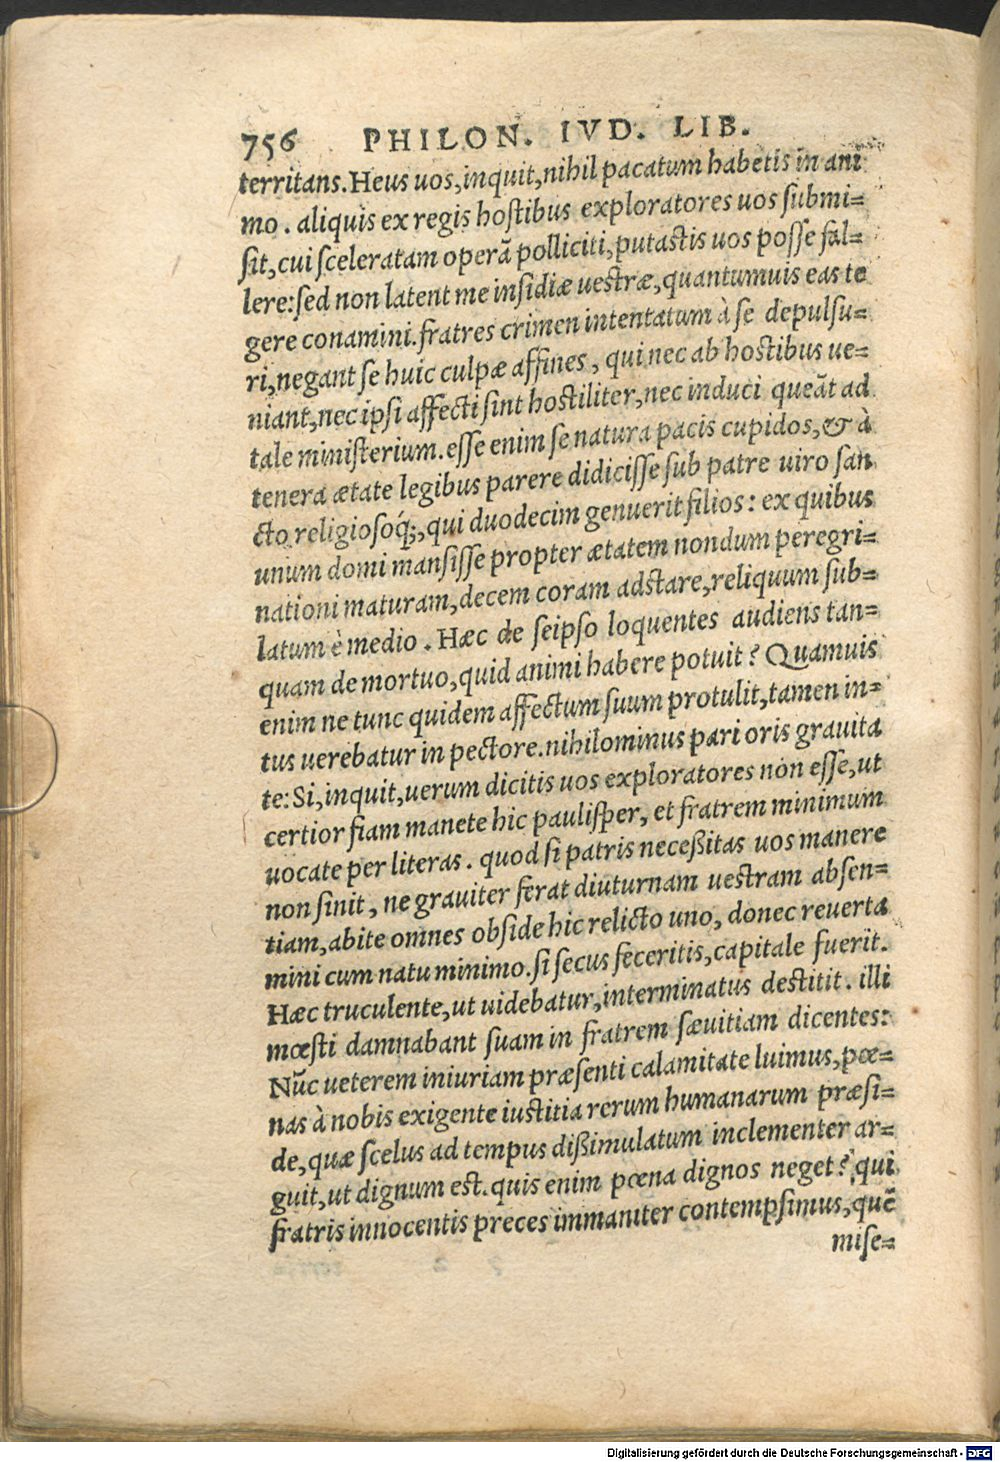 756 PHILON. IVD. LIB.
territans. Heus uos, inquit, nihil pacatum habetis in ani
mo. aliquis ex regis hoſtibus exploratores uos ſubmi=
ſit, cui ſceleratam operã polliciti, putaſtis uos poſſe fal=
lere: ſed non latent me inſidiæ ueſtræ, quantumuis eas te
gere conamini. fratres crimen intentatum à ſe depulſu=
ri, negant ſe huic culpæ affines, qui nec ab hoſtibus ue=
niant, nec ipſi affecti ſint hoſtiliter, nec induci queãt ad
tale miniſterium. eſſe enim ſe natura pacis cupidos, & à
tenera ætate legibus parere didiciſſe ſub patre uiro ſan
cto religioſoq́;, qui duodecim genuerit filios: ex quibus
unum domi manſiſſe propter ætatem nondum peregri=
nationi maturam, decem coram adſtare, reliquum ſub=
latum è medio. Hæc de ſeipſo loquentes audiens tan=
quam de mortuo, quid animi habere potuit? Quamuis
enim ne tunc quidem affectum ſuum protulit, tamen in=
tus uerebatur in pectore. nihilominus pari oris grauita
te: Si, inquit, uerum dicitis uos exploratores non eſſe, ut
certior fiam manete hic pauliſper, et fratrem minimum
uocate per literas. quod ſi patris neceßitas uos manere
non ſinit, ne grauiter ferat diuturnam ueſtram abſen=
tiam, abite omnes obſide hic relicto uno, donec reuerta
mini cum natu minimo. ſi ſecus feceritis, capitale fuerit.
Hæc truculente, ut uidebatur, interminatus deſtitit. illi
mœſti damnabant ſuam in fratrem ſæuitiam dicentes:
Nũc ueterem iniuriam præſenti calamitate luimus, pœ=
nas à nobis exigente iuſtitia rerum humanarum præſi=
de, quæ ſcelus ad tempus dißimulatum inclementer ar=
guit, ut dignum eſt. quis enim pœna dignos neget? qui
fratris innocentis preces immaniter contempſimus, quẽ
miſe=
Digitalisierung gefördert durch die Deutsche Forschungsgemeinschaft - DFG